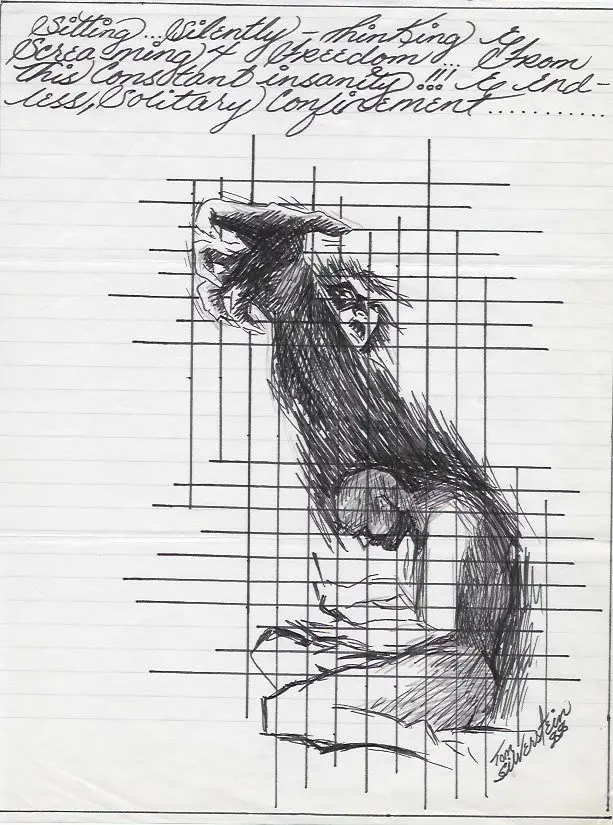 Sitting... Silently - thinking &
Screaming 4 Freedom... From
this Constant insanity!!! & End-
less, Solitary Confinement............
Tom
Silverstein